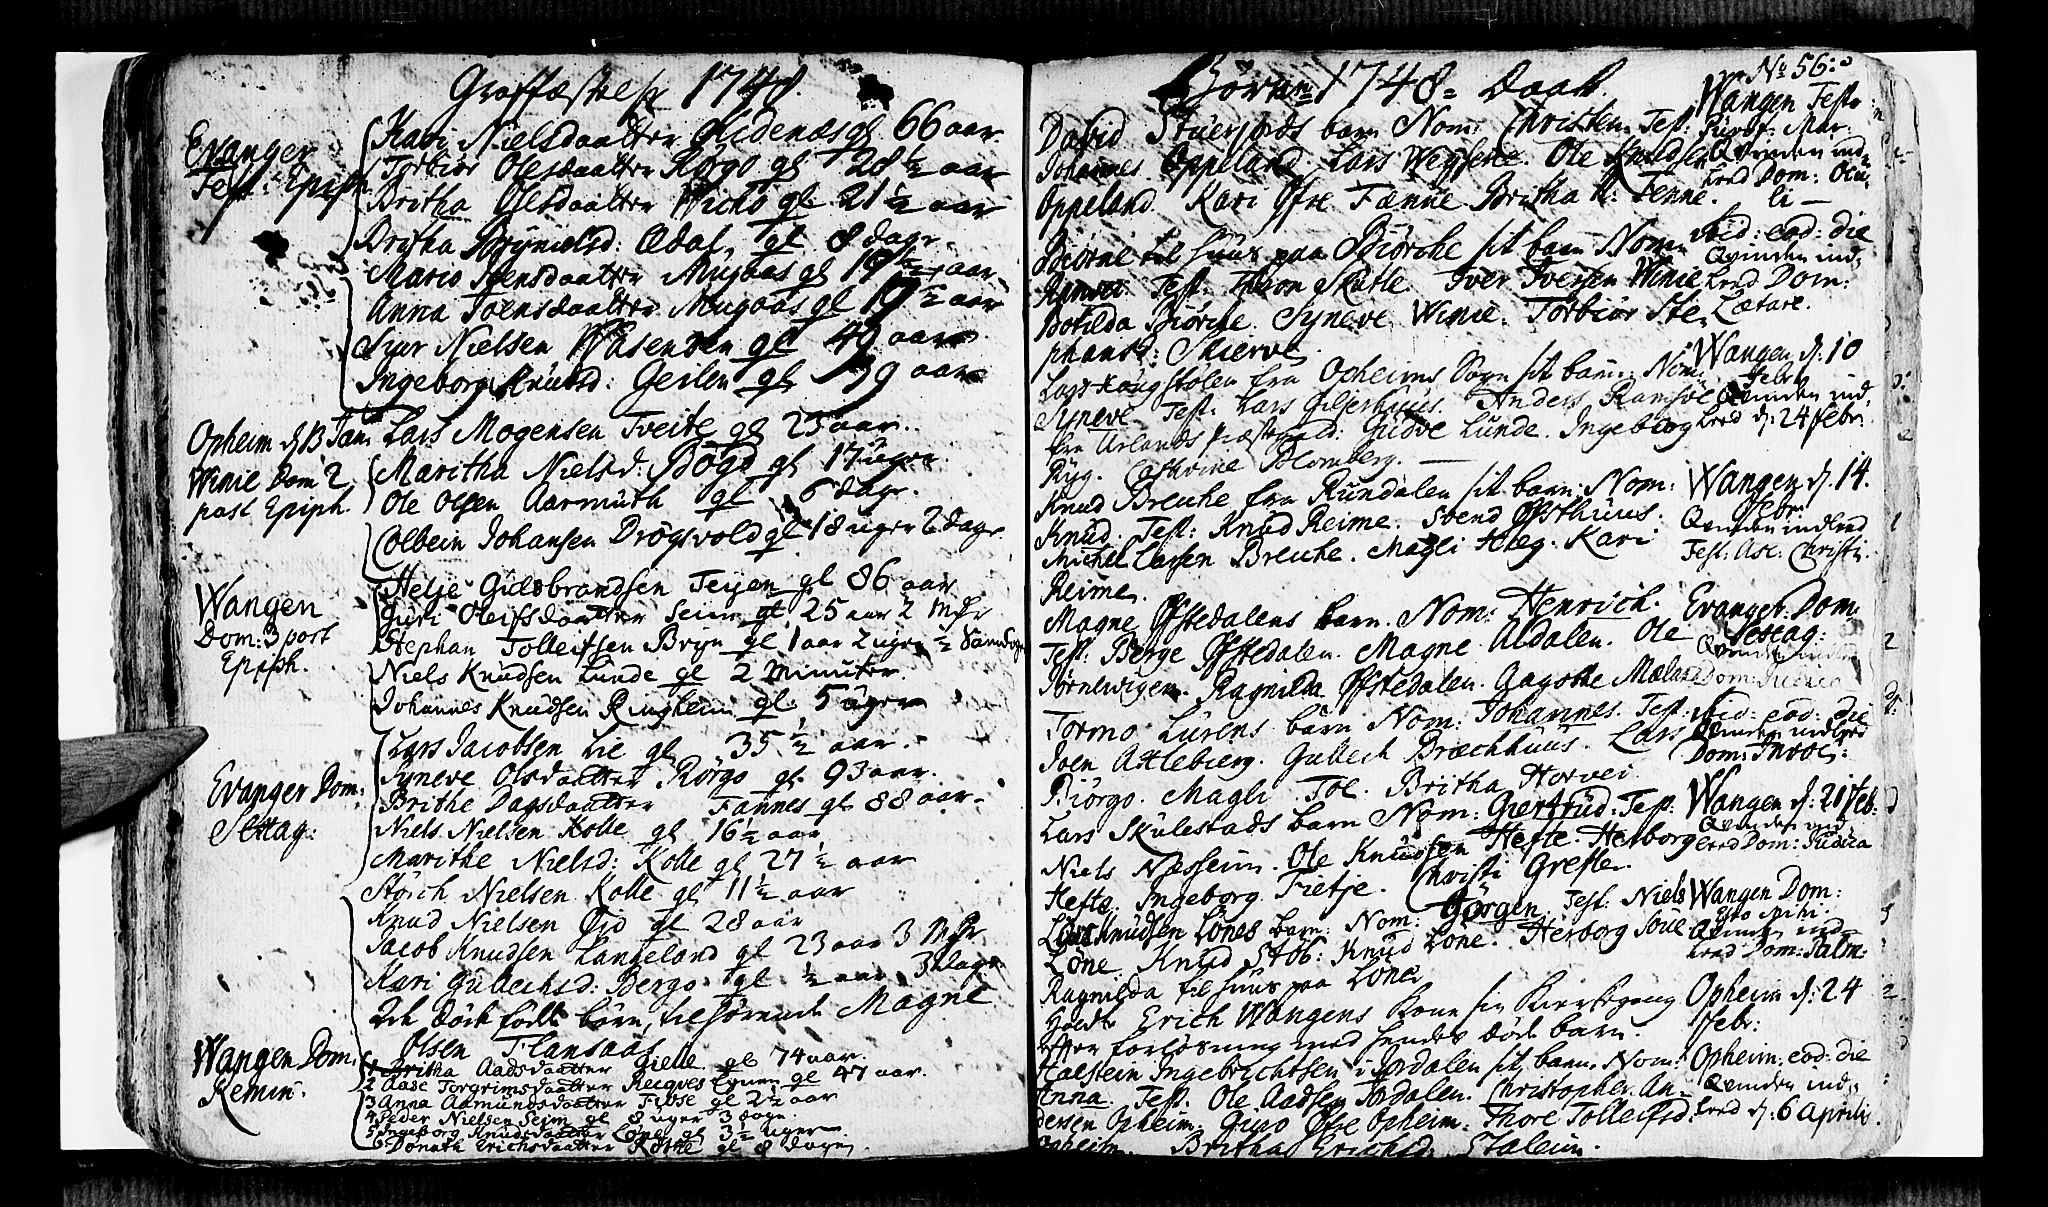 Graffæstelse 1748.
Evanger
Fest: Epiph.
Kari Nielsdaatter Kidenæs gl 66 aar.
Torbiør Olesdaatter Rørgo gl 28 1/2 aar
Britha Olsdaatter Wicho gl 21 1/2 aar
Britha Brÿnielsd: Ædal, gl 8 dage.
Mario Joensdaatter Mugaas gl 19 1/2 aar
Anna Joensdaatter Mugaas gl 19 1/2 aar
Siur Nielsen Wasenden gl 49 aar
Ingeborg Knudsd: Geilen gl 39 aar
Opheim d. 13 Jan: Lars Mogensen Tveite gl 23 aar.
Winie Dom 2
post Epiph.
Maritha Nielsd: Bøge gl 17 uger.
Ole Olsen Aarmuth gl 6 dage.
Colbein Johansen Drøgsvold gl 18 uger 2 dage
Wangen
Dom: 3 post
Epiph.
Helje Guldbrandsen Teÿen gl 86 aar
Guri Oleifsdaatter Seim gl 25 aar 2 Mdr
Stephan Tolleifsen Brÿn gl 1 aar 2 uger
Niels Knudsen Lunde gl 2 Minuter.
Johannes Knudsen Ringheim gl. 5 uger
Evanger Dom:
Sexag:
Lars Jacobsen Lie gl 35 1/2 aar.
Sÿneve Olsdaatter Rørgo gl. 93 aar.
Brithe Dagsdaatter Fannes gl 88 aar.
Niels Nielsen Kolle gl 16 1/2 aar
Marithe Nielsd: Kolle gl 27 1/2 aar
Störch Nielsen Kolle gl 11 1/2 aar
Knud Nielsen Qid gl 28 aar
Jacob Knudsen Langeland gl 23 aar 3 Mdr
Kari Gullechsd: Bergo gl 1/2 aar 3 dage
Et död fodt barn, tilhørende Magne
Olsen Flansaas
Wangen Dom:
Remin:
1 Britha Aadsdaatter Gielle gl 74 aar.
2 Aase Torgrimsdaatter Reeqves Lÿnen gl 47 aar.
3 Anna Aamundsdaatter Flose gl 2 1/2 aar
4 Peder Nielsen Seim gl 8 uger 3 dage.
5 Ingeborg Knudsdaatter Lone gl 3 1/2 uger
6 Dorothe Erichsdaatter Rothe gl 8 dage
No 56:
Børn 1748 Daab.
David Stuerfords barn Nom: Christen. Test:
Johannes Oppeland. Lars Weÿsete. Ole Knudsen
Oppeland. Kari Øfre Fænne Britha N: Fenne.
Wangen Festo
Purif: Mar.
Qvinden ind-
leed Dom: Ocu-
li —
Biørne til huus paa Biørche sit barn Nom:
Ranvei. Test: Thron Skutle. Iver Iversen Winie
Botilda Biørche. Sÿneve Winie. Torbiør Ste-
phansd: Skierve
Ibid: eod: die
Qvinden ind-
leed Dom:
Lætare.
Lars Kongstolen fra Opheims Sogn sit barn: Nom:
Sÿneve Test: Lars Giljerhuus. Anders Ramsøe
fra Urlands præstegield: Gudve Lunde. Ingeborg
Rÿg. Cathrine Blomberg.
Wangen d. 10
Febr
Qvinden ind-
leed d: 24 febr:
Knud Breche fra Rundalen sit barn: Nom:
Knud. Test: Knud Reime. Svend Østhuus.
Michel Larsen Breche. Magli Hæg. Kari
Reime.
Wangen d. 14.
Febr:
Qvinden indleed
Fest: Asc: Christi.
Magne Øfstedalens barn. Nom: Henrich.
Test: Berge Øfstedalen. Magne Aldalen. Ole
Jørnevigen. Ragnilda Øfstedalen. Aagothe Mæland
Evanger Dom:
Sexag:
Qvinden indleed
Dom: Judica
Tormo Lurens barn Nom: Johannes. Test:
Iven Attebierg. Gullech Bræchhuus. Lars
Biørgo. Magli Toe. Britha Horvei
Ibid: eod: die
Qvinden indleed
Dom: Invoc:
Lars Skulestads barn Nom: Giertrud: Test:
Niels Næsseim. Ole Knudsen Hefte. Herborg
Hefte. Ingeborg Tietje. Christi Grefle.
Wangen d: 21 Feb:
Qvinden ind-
leed Dom: Judica
Lars Knudsen Lones barn: Nom: Görgen Test: Niels
Lone. Knud Stöb: Knud Lone. Herborg Soue
Ragnilda til huus paa Lone.
Wangen Dom:
Esto Mihi.
Qvinden ind-
leed Dom: Palm:
Erich Wangens Kone sin Kierkegang
efter forløsning med hendes döde barn.
Opheim d: 24
Febr:
Halstein Ingebrichtsen i Jordalen sit barn. Nom:
Anna. Test: Ole Aadsen Jordalen. Christopher An-
dersen Opheim: Guro Øfre Opheim: Thore Tollefsd:
Opheim. Britha Erichsd: Stalein.
Opheim: eod: die
Qvinden ind-
leed d: 6 Aprili.